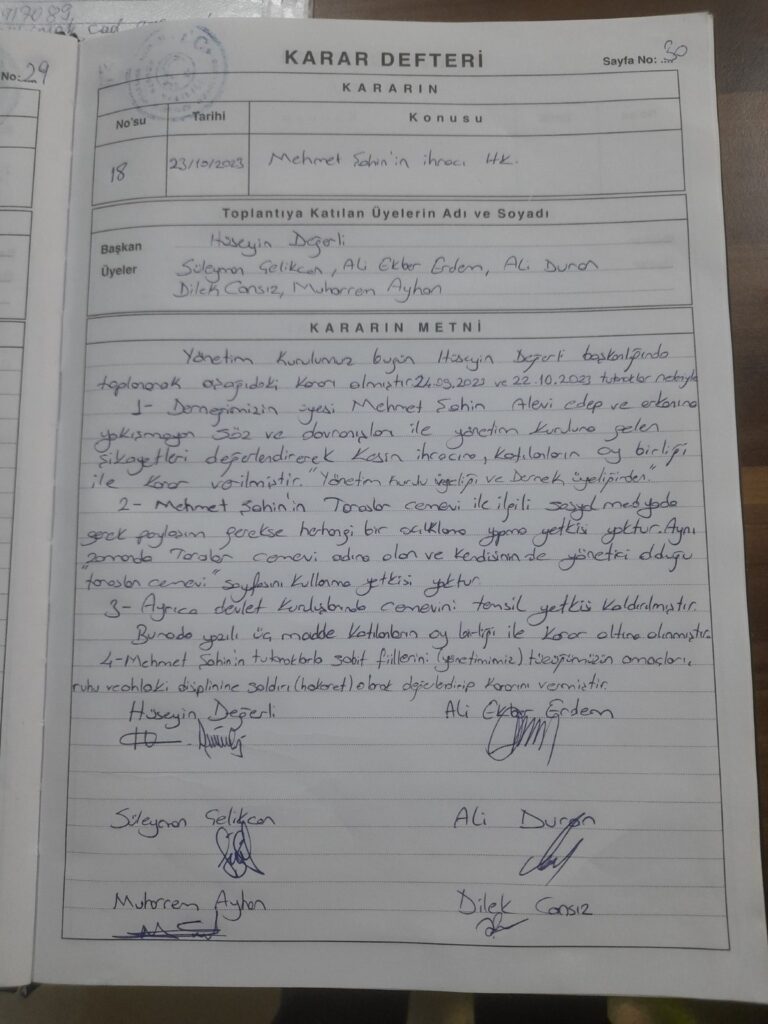 917089,
cad
No: 29
KARAR DEFTERİ
Sayfa No: 30
KARARIN
No'su
Tarihi
Konusu
18
23/10/2023
Mehmet Şahin'in ihracı HK.
Toplantıya Katılan Üyelerin Adı ve Soyadı
Başkan Hüseyin Değerli
Üyeler Süleyman Çelikcan, Ali Ekber Erdem, Ali Duran
Dilek Cansız, Muharrem Ayhan
KARARIN METNİ
Yönetim Kurulumuz bugün Hüseyin Değerli başkanlığında
toplanarak aşağıdaki kararı almıştır. 24.09.2023 ve 22.10.2023 tutanaklar nedeniyle
1- Derneğimizin üyesi Mehmet Şahin Alevi edep ve erkanına
yakışmayan söz ve davranışları ile yönetim kuruluna gelen
şikayetleri değerlendirerek kesin ihracına, katılanların oy birliği
ile karar verilmiştir. "Yönetim kurulu üyeliği ve Dernek üyeliğinden."
2- Mehmet Şahin'in Toroslar cemevi ile ilgili sosyal medyada
gerek paylaşım gerekse herhangi bir açıklama yapma yetkisi yoktur. Aynı
zamanda Toroslar cemevi adına olan ve kendisinin de yönetici olduğu
"toroslar cemevi" sayfasını kullanma yetkisi yoktur.
3- Ayrıca devlet kuruluşlarında cemevini temsil yetkisi kaldırılmıştır.
Burada yazılı üç madde katılanların oy birliği ile karar altına alınmıştır.
4- Mehmet Şahin'in tutanaklarla sabit fiillerini (yönetimimiz) tüzüğümüzün amaçları,
ruhu ve ahlaki disiplinine saldırı (hakaret) olarak değerlendirip kararını vermiştir.
Hüseyin Değerli
Ali Ekber Erdem
Süleyman Çelikcan
Ali Duran
Muharrem Ayhan
Dilek Cansız